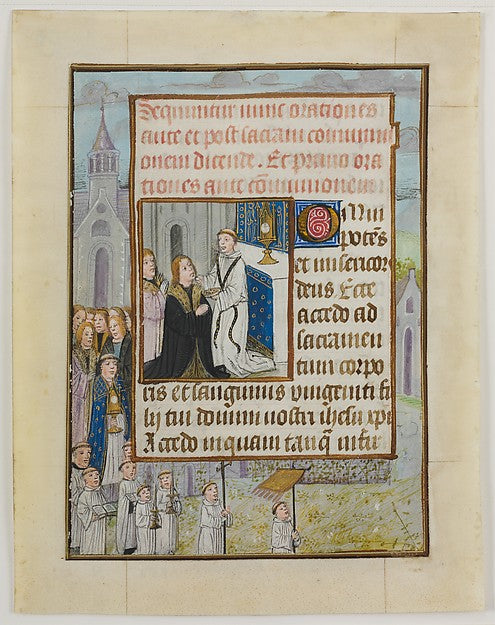 Sequuntur nunc orationes
ante et post sacram communi
onem dicende. Et primo ora
tiones ante cōmunionem
Omni
potēs
et misericors
deus. Ecce
accedo ad
sacramen
tum corpo
ris et sanguinis unigeniti fi
lij tui domini nostri ihesu xpi
Accedo inquam tanq̄ infir